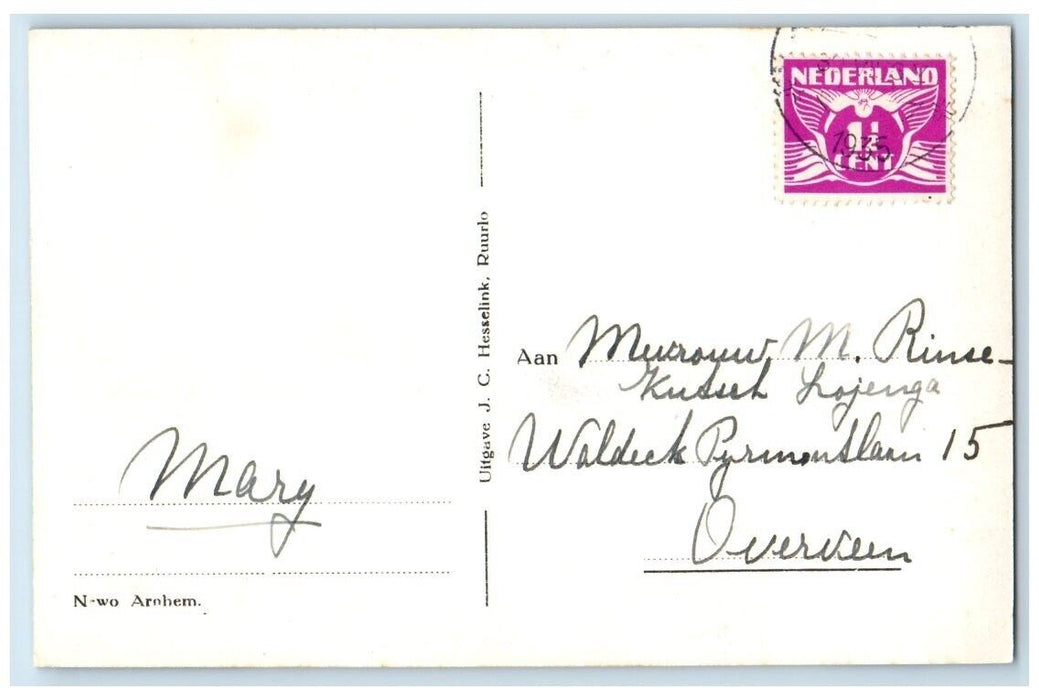 NEDERLAND
1½
CENT
1935
Uitgave J. C. Hesselink, Ruurlo
Aan Mevrouw M. Rinse-
Kutsch Lojenga
Waldeck Pyrmontlaan 15
Overveen
Mary
N-wo Arnhem.